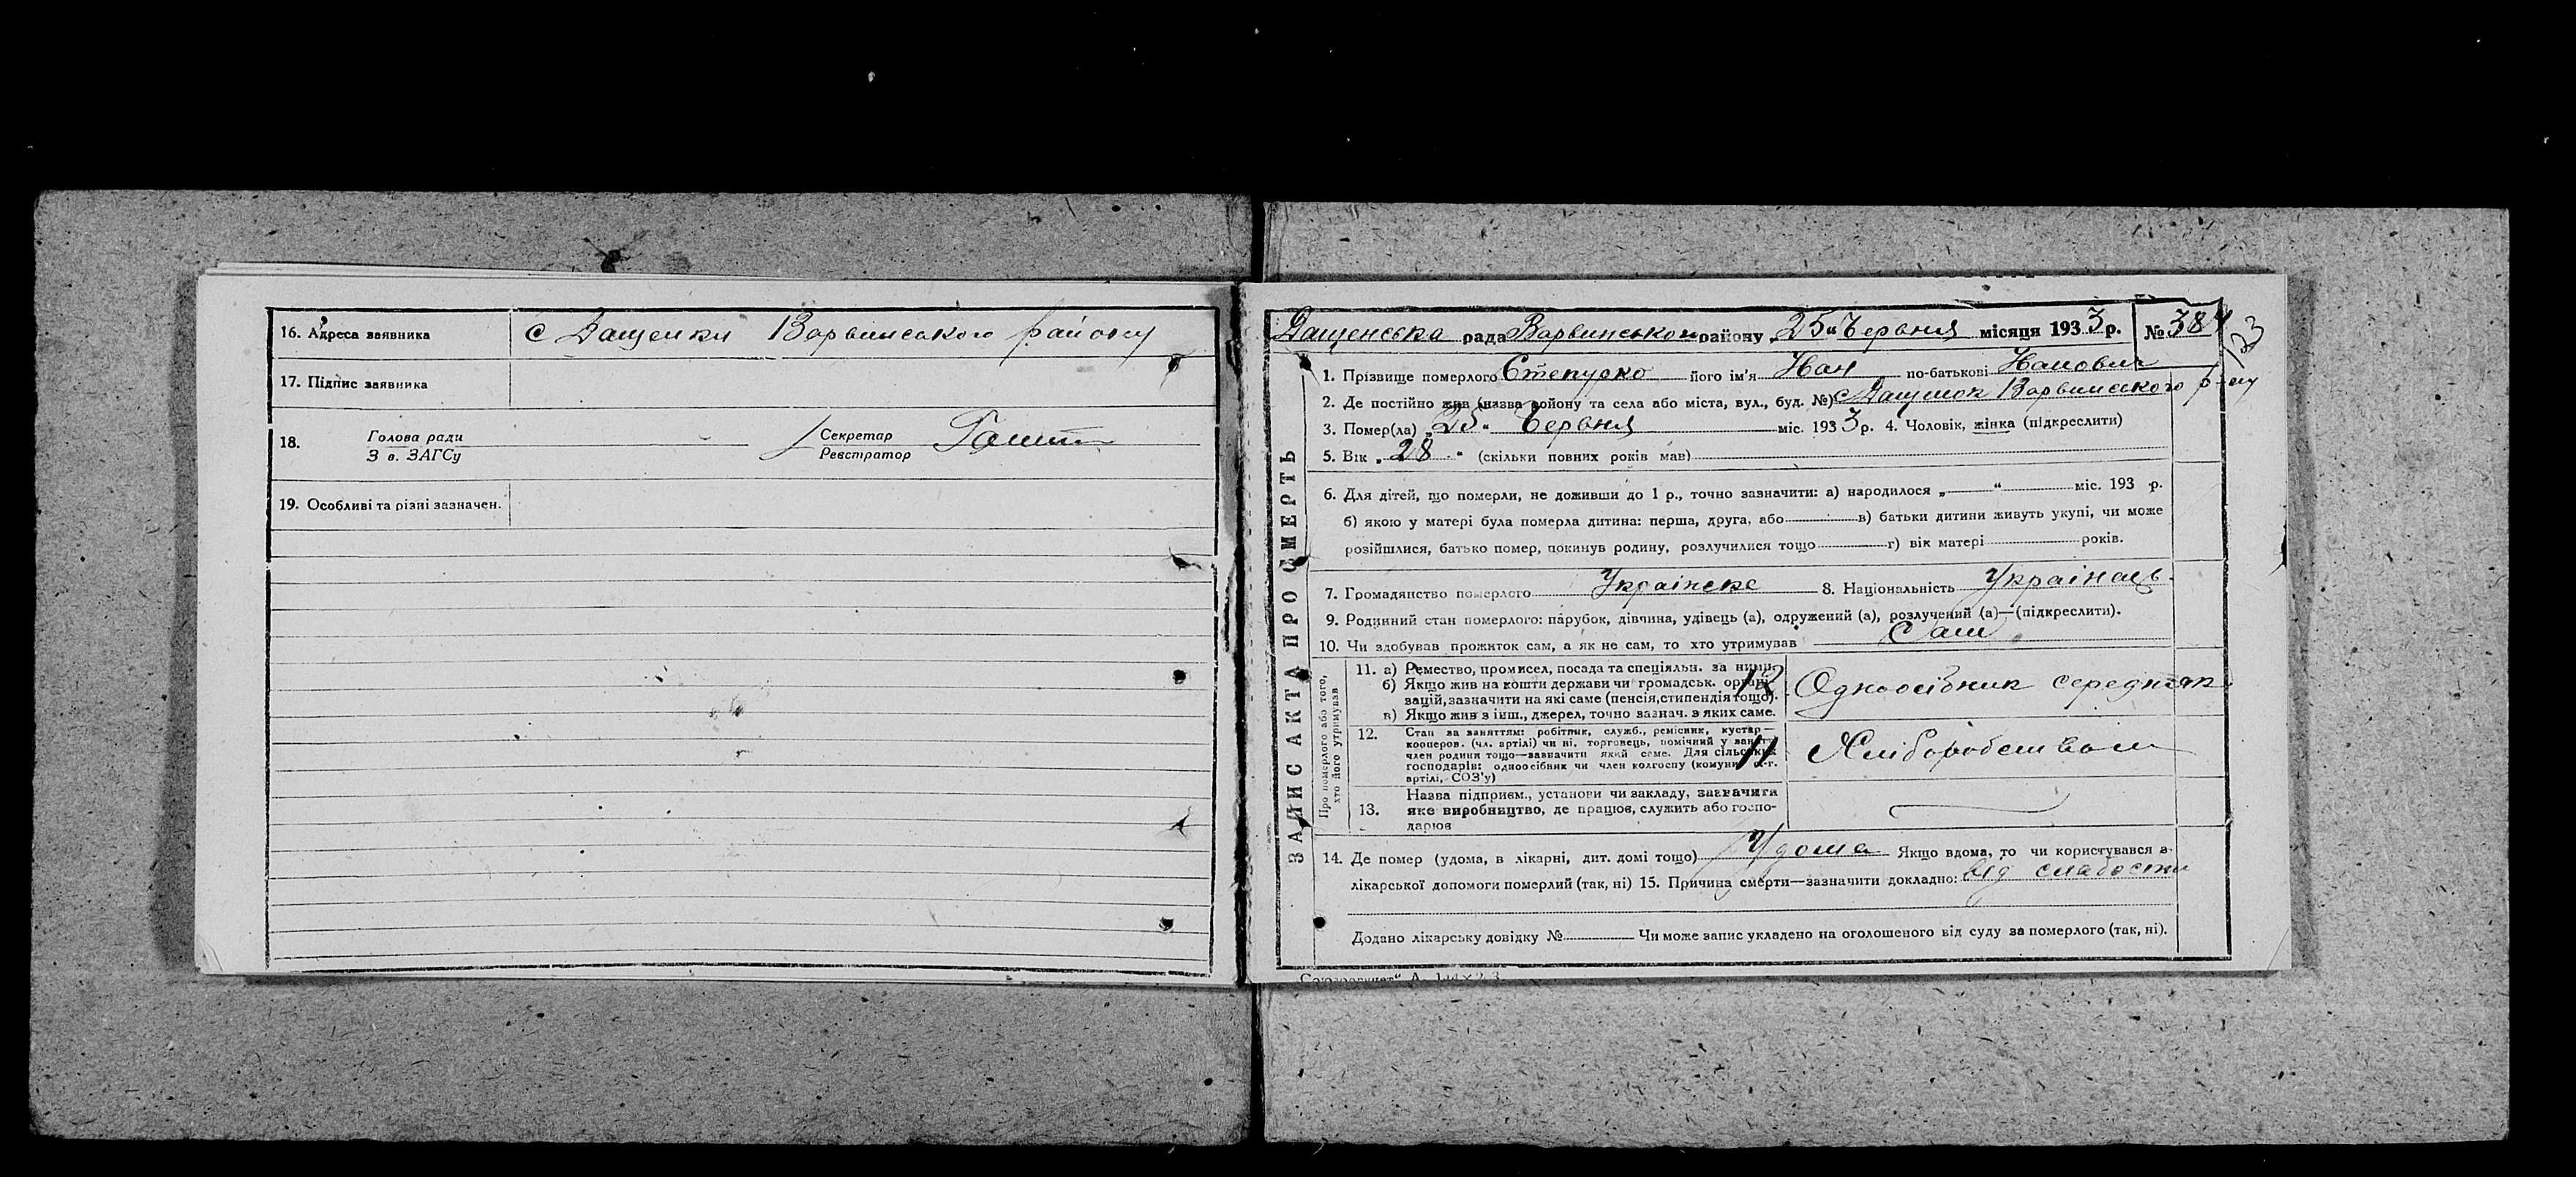 16. Адреса заявника с Дащенки Варвинського району
17. Підпис заявника
18. Голова ради Секретар
З в. ЗАГСу Реєстратор
19. Особливі та різні зазначен.
ЗАПИС АКТА ПРО СМЕРТЬ
Дащенська рада Варвинського району „25" Червня місяця 1933 р. № 384
123
1. Прізвище померлого Степурко його ім'я Іван по-батькові Іванович
2. Де постійно жив (назва району та села або міста, вул., буд. №) с Дащенки Варвинського р-ну
3. Помер(ла) „25" Червня міс. 1933 р. 4. Чоловік, жінка (підкреслити)
5. Вік „28" (скільки повних років мав)
6. Для дітей, що померли, не доживши до 1 р., точно зазначити: а) народилося „ " міс. 193 р.
б) якою у матері була померла дитина: перша, друга, або в) батьки дитини живуть укупі, чи може
розійшлися, батько помер, покинув родину, розлучилися тощо г) вік матері років.
7. Громадянство померлого Українське 8. Національність Українець.
9. Родинний стан померлого: парубок, дівчина, удівець (а), одружений (а), розлучений (а)—(підкреслити).
10. Чи здобував прожиток сам, а як не сам, то хто утримував Сам
Про померлого або того, хто його утримував
11. а) Ремество, промисел, посада та спеціяльн. за ними.
б) Якщо жив на кошти держави чи громадськ. органі-
зацій, зазначити на які саме (пенсія, стипендія тощо).
в) Якщо жив з інш., джерел, точно зазнач. з яких саме.
12 Одноосібник середняк
12. Стан за заняттям: робітник, служб., ремісник, кустар—
кооперов. (чл. артілі) чи ні, торговець, помічний у занят.
член родини тощо—зазначити який саме. Для сільських
господарів: одноосібник чи член колгоспу (комуни, с.-г.
артілі, СОЗ'у)
11 Хліборобством
13. Назва підприєм., установи чи закладу, зазначити
яке виробництво, де працює, служить або госпо-
дарює
14. Де помер (удома, в лікарні, дит. домі тощо) Удома Якщо вдома, то чи користувався з
лікарської допомоги померлий (так, ні) 15. Причина смерти—зазначити докладно: від слабости
Додано лікарську довідку № Чи може запис укладено на оголошеного від суду за померлого (так, ні).